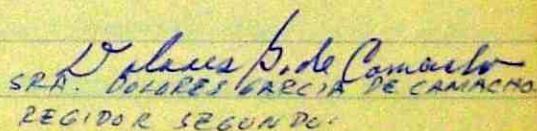 Dolores G. de Camacho
SRA. DOLORES GARCIA DE CAMACHO.
REGIDOR SEGUNDO.